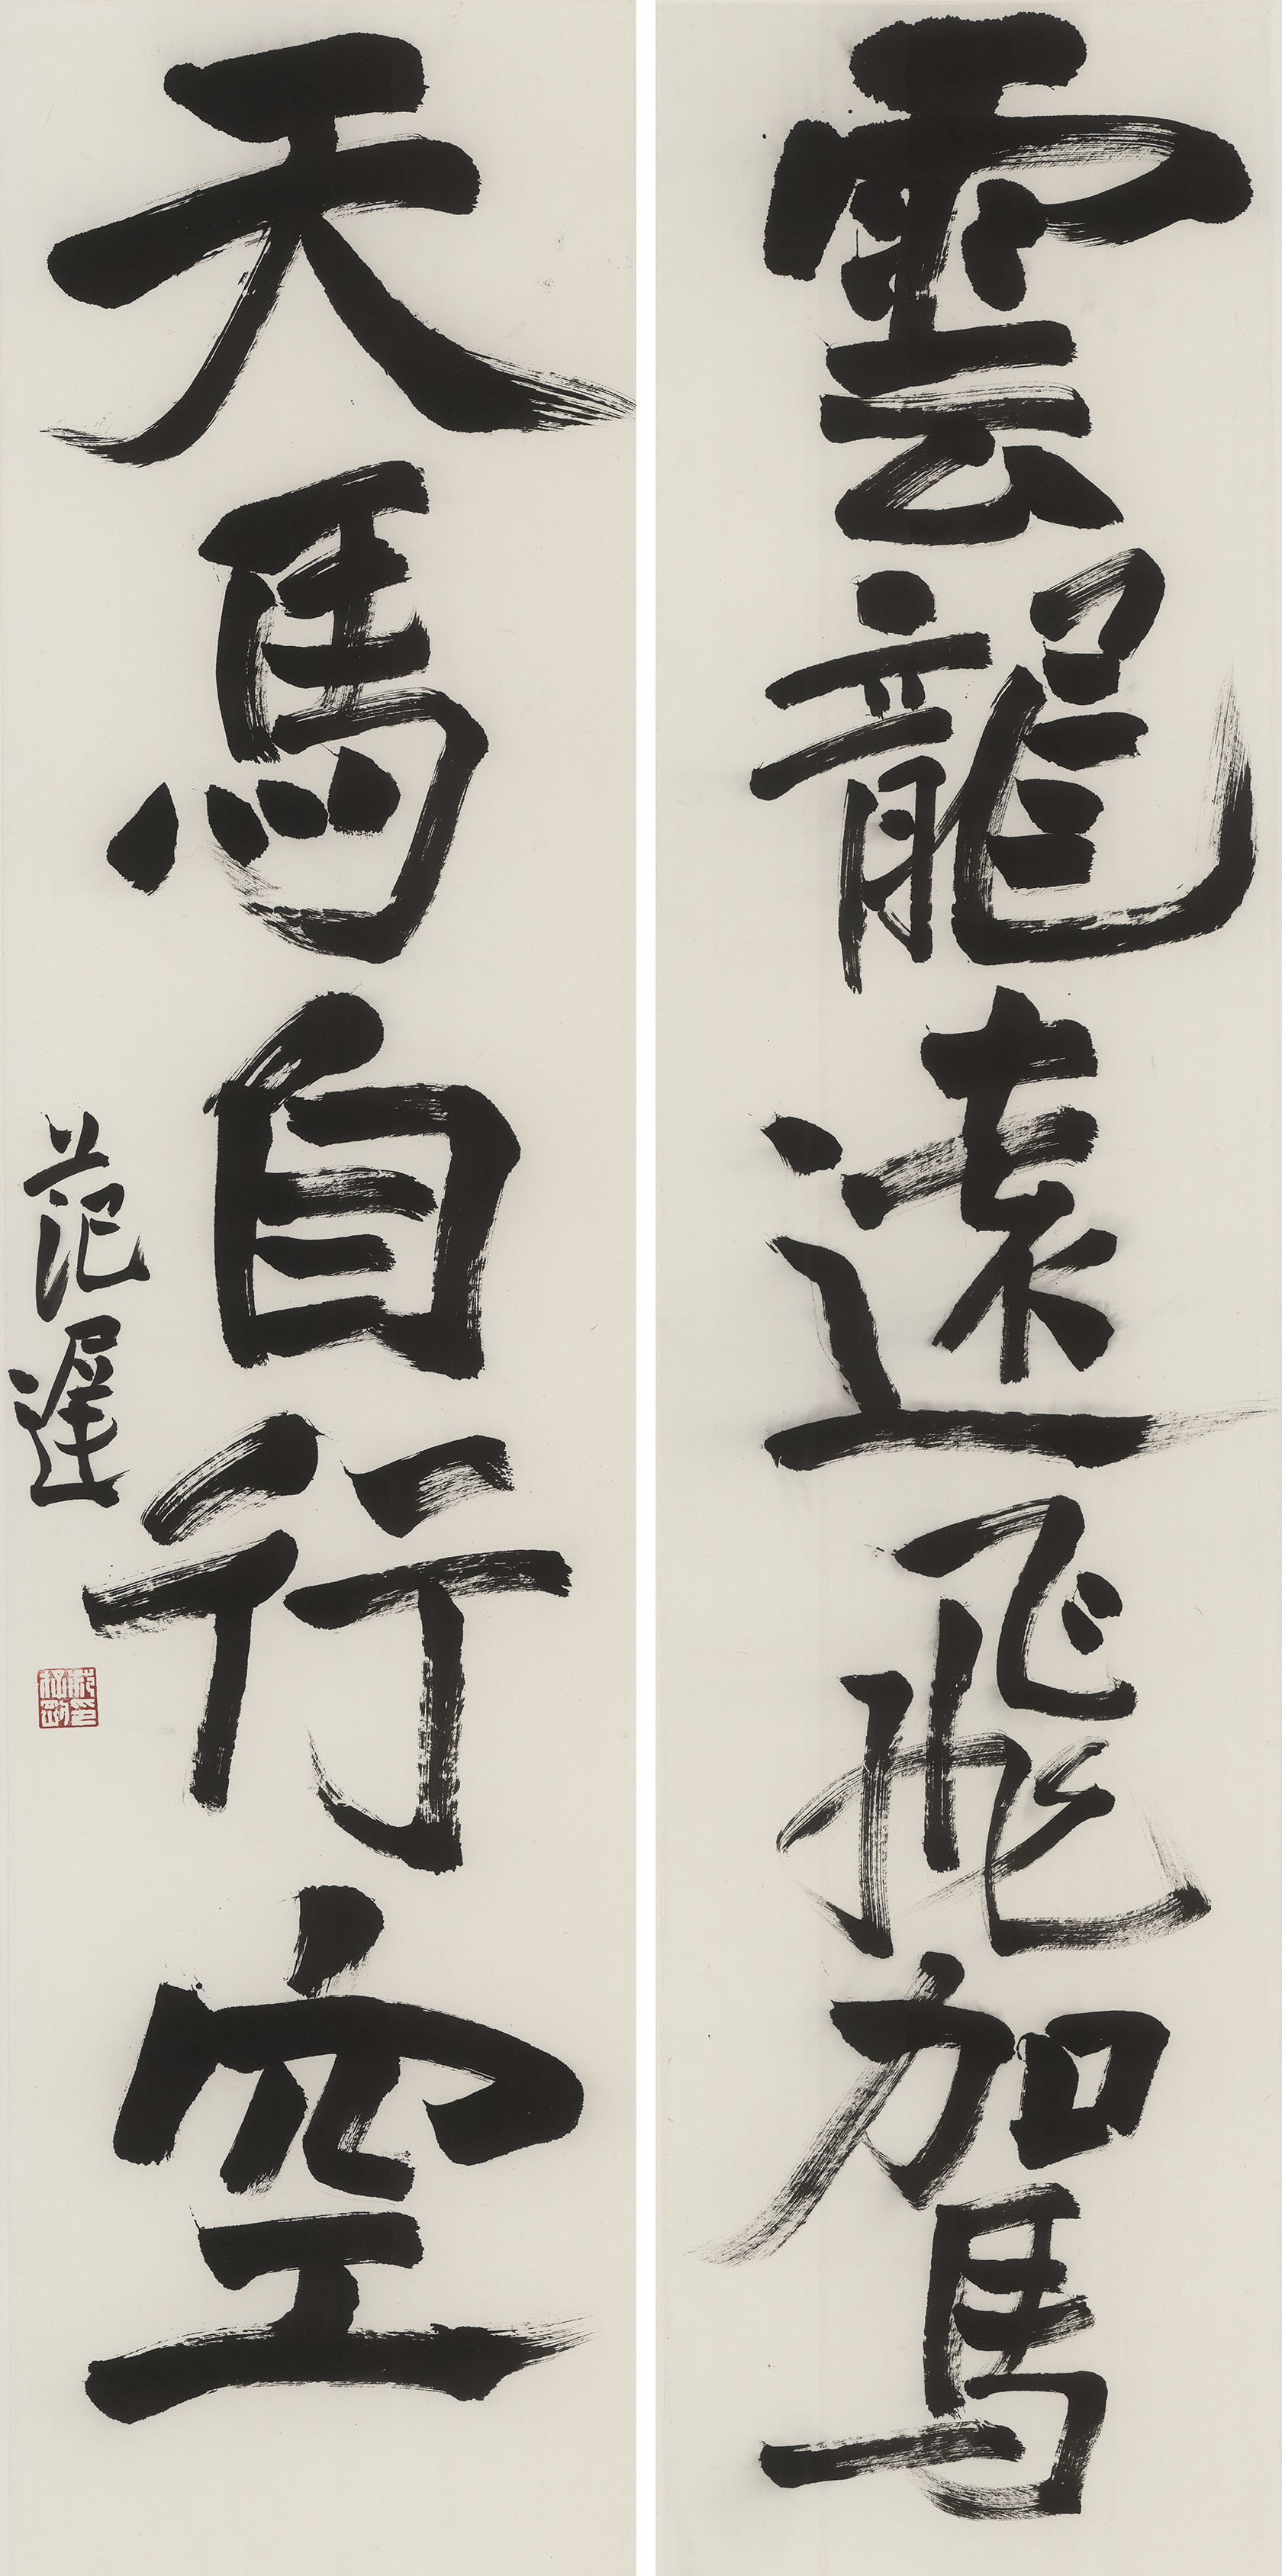 雲龍遠飛駕
天馬自行空
范遲